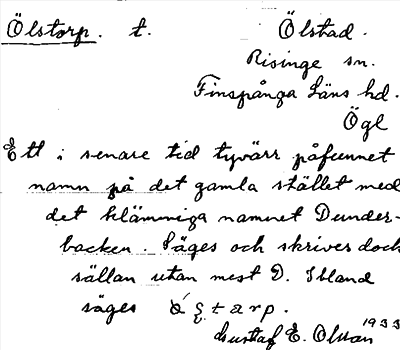 Ölstorp. t. Ölstad.
Risinge sn.
Finspånga Läns hd.
Ögl
Ett i senare tid tyvärr påfunnet
namn på det gamla stället med
det klämmiga namnet Dunder-
backen. Säges och skrives dock
sällan utan mest D. Ibland
säges
1933
Gustaf E. Olsson